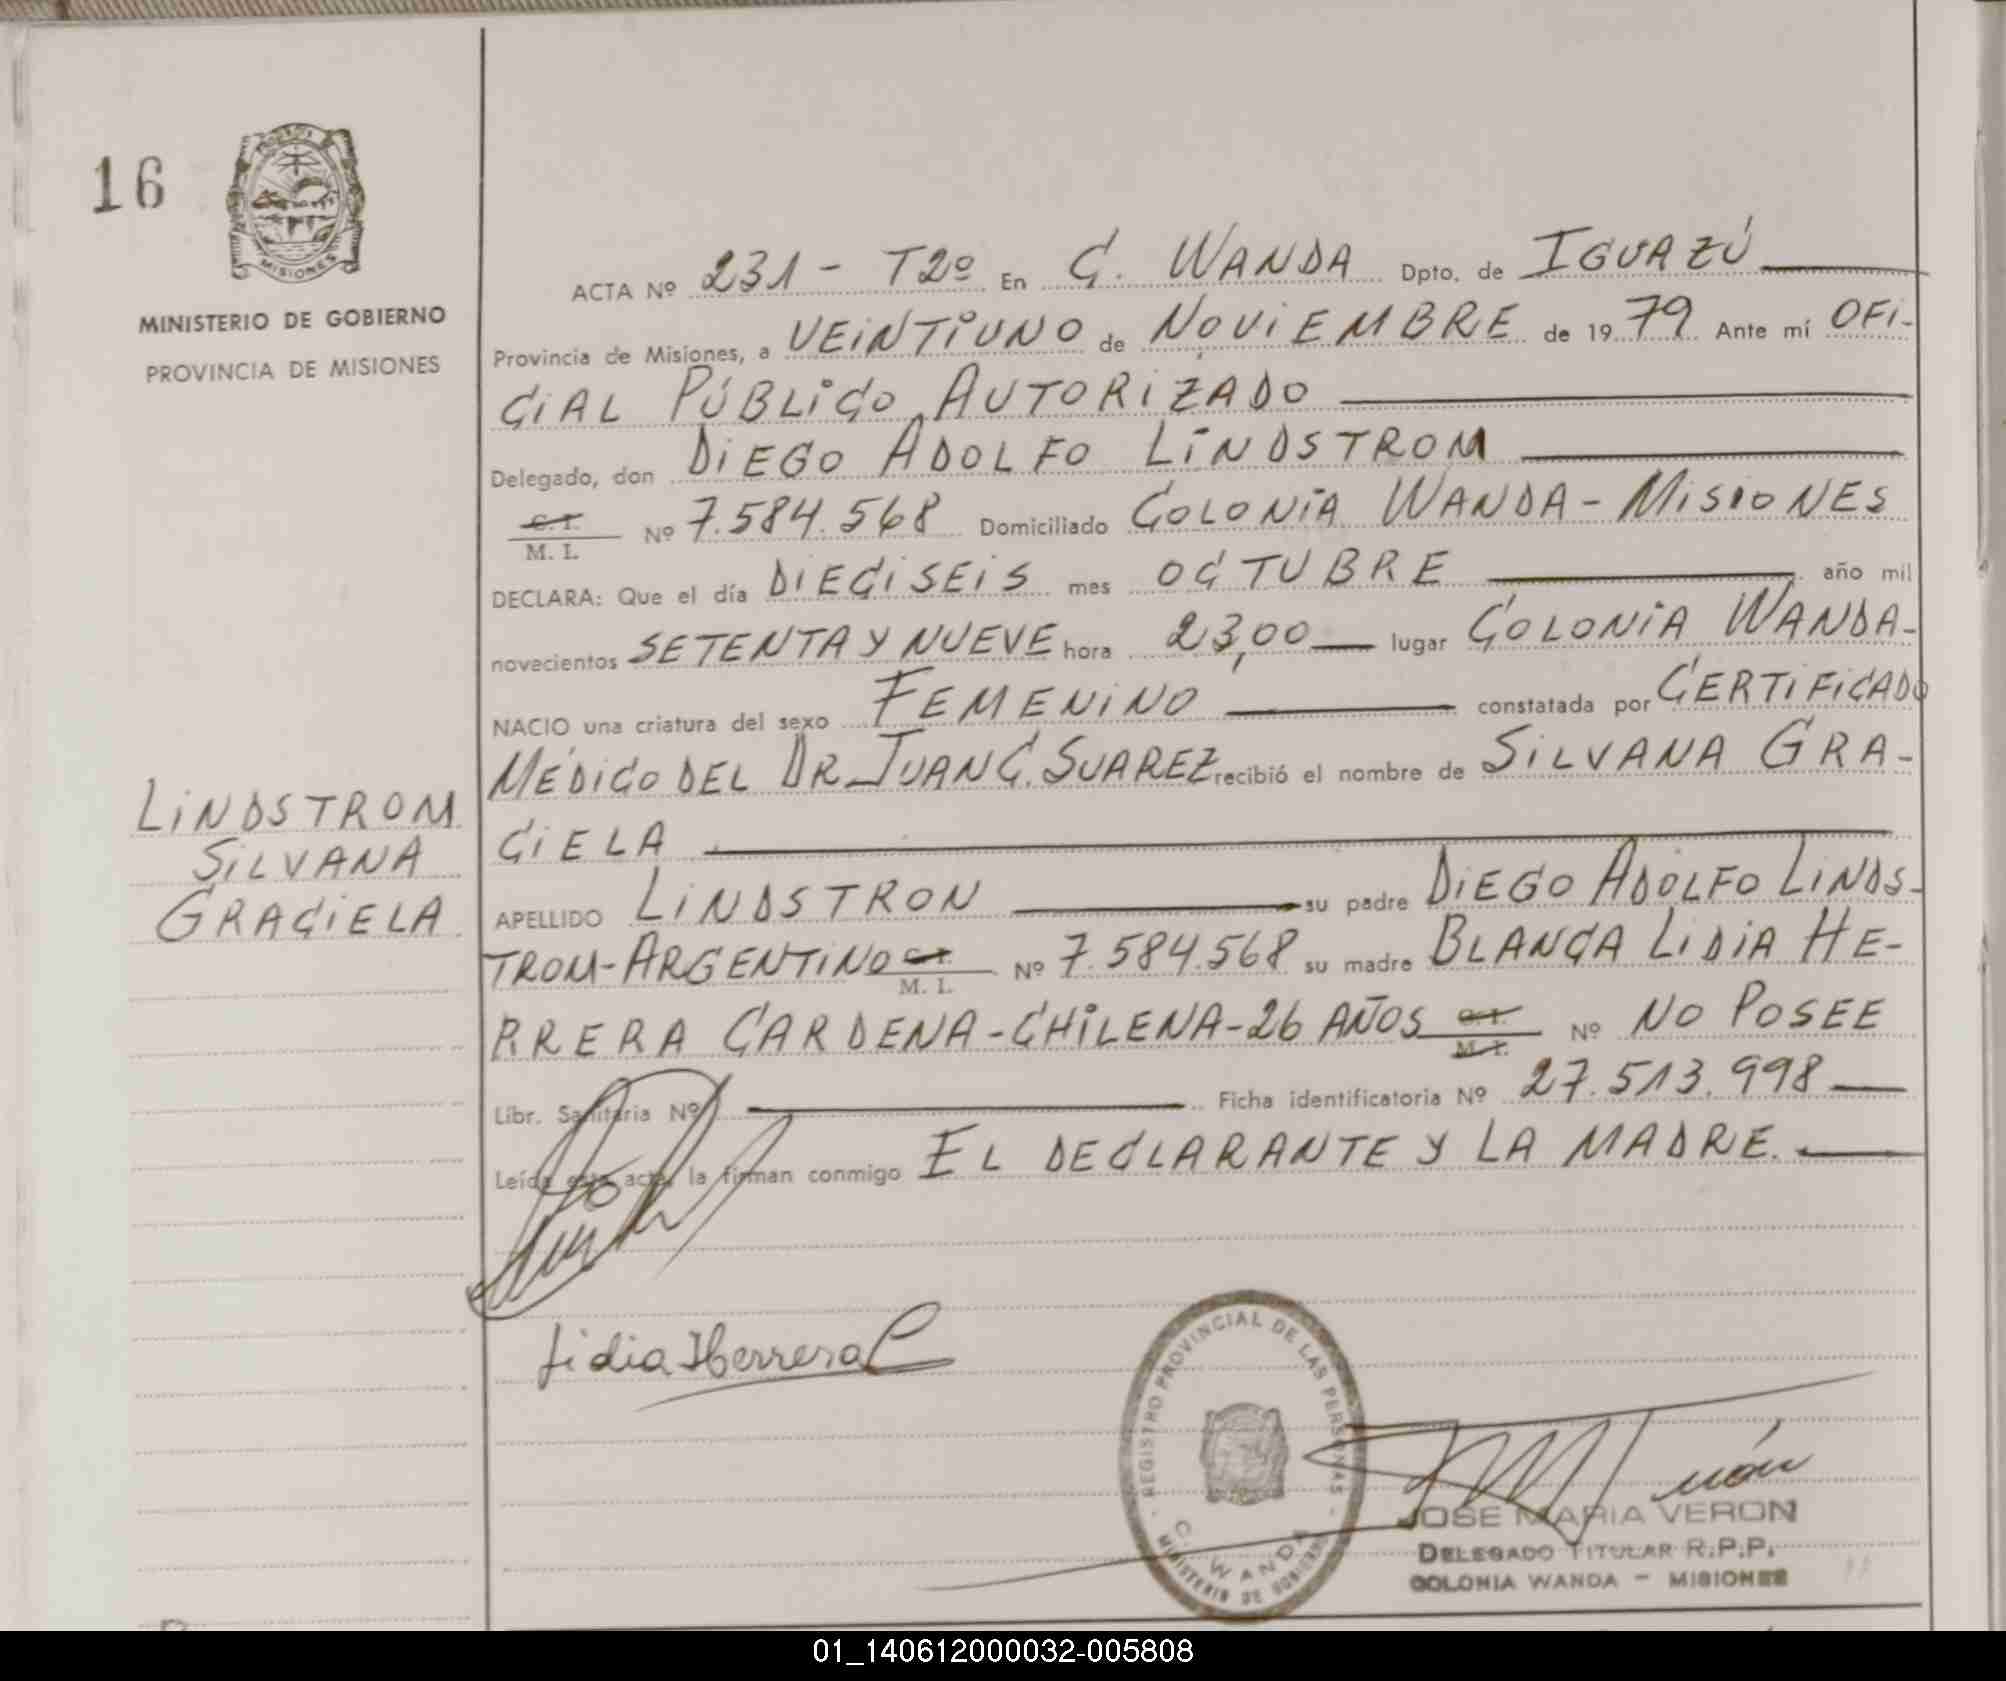 16
MINISTERIO DE GOBIERNO
PROVINCIA DE MISIONES
ACTA Nº 231 - T2º En C. WANDA Dpto. de IGUAZÚ
Provincia de Misiones, a VEINTIUNO de NOVIEMBRE de 1979 Ante mí OFI-
CIAL PÚBLICO AUTORIZADO
Delegado, don DIEGO ADOLFO LINDSTROM
C. I.
M. I. Nº 7.584.568 Domiciliado COLONIA WANDA - MISIONES
DECLARA: Que el día DIECISEIS mes OCTUBRE año mil
novecientos SETENTA Y NUEVE hora 23,00 lugar COLONIA WANDA-
NACIO una criatura del sexo FEMENINO constatada por CERTIFICADO
MÉDICO DEL DR JUAN C. SUAREZ recibió el nombre de SILVANA GRA-
CIELA
APELLIDO LINDSTRON su padre DIEGO ADOLFO LINDS-
TROM-ARGENTINO C. I.
M. I. Nº 7.584.568 su madre BLANCA LIDIA HE-
RRERA CARDENA-CHILENA-26 AÑOS C. I.
M. I. Nº NO POSEE
Libr. Sanitaria Nº Ficha identificatoria Nº 27.513.998
Leída esta acta, la firman conmigo EL DECLARANTE Y LA MADRE.
LINDSTROM
SILVANA
GRACIELA
Lidia Herrera C
REGISTRO PROVINCIAL DE LAS PERSONAS
C. WANDA
MINISTERIO DE GOBIERNO
JOSE MARIA VERON
DELEGADO TITULAR R.P.P.
COLONIA WANDA - MISIONES
MISIONES
01_140612000032-005808